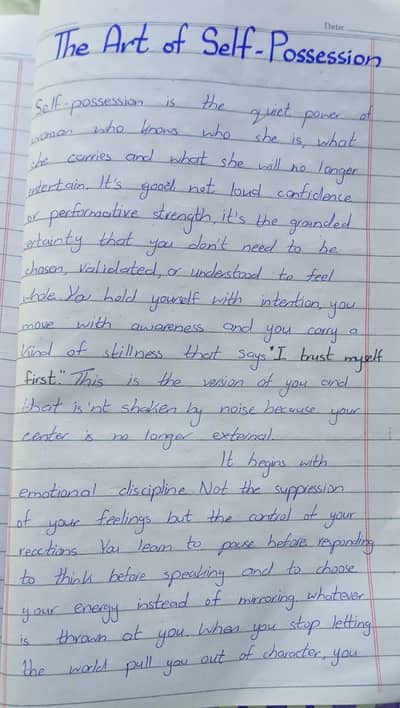 Date
The Art of Self-Possession
Self-possession is the quiet power of
woman who knows who she is, what
she carries and what she will no longer
entertain. It's good not loud confidence
or performative strength, it's the grounded
certainty that you don't need to be
chosen, validated, or understood to feel
whole. You hold yourself with intention, you
move with awareness and you carry a
kind of stillness that says "I trust myself
first." This is the version of you and
that is'nt shaken by noise because your
center is no longer external.
It begins with
emotional discipline. Not the suppression
of your feelings but the control of your
reactions. You learn to pause before responding
to think before speaking and to choose
your energy instead of mirroring whatever
is thrown at you. When you stop letting
the world pull you out of character, you